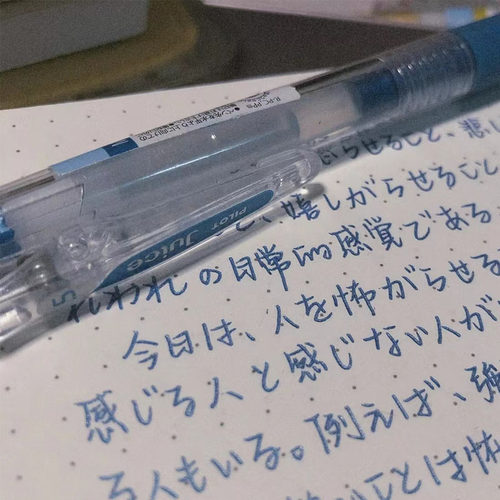 PILOT Juice
がらせること、悲
嬉しがらせること
れわれの日常的感覚である
今日は、人を怖がらせる
感じる人と感じない人が
る人もいる。例えば、強
ことは怖